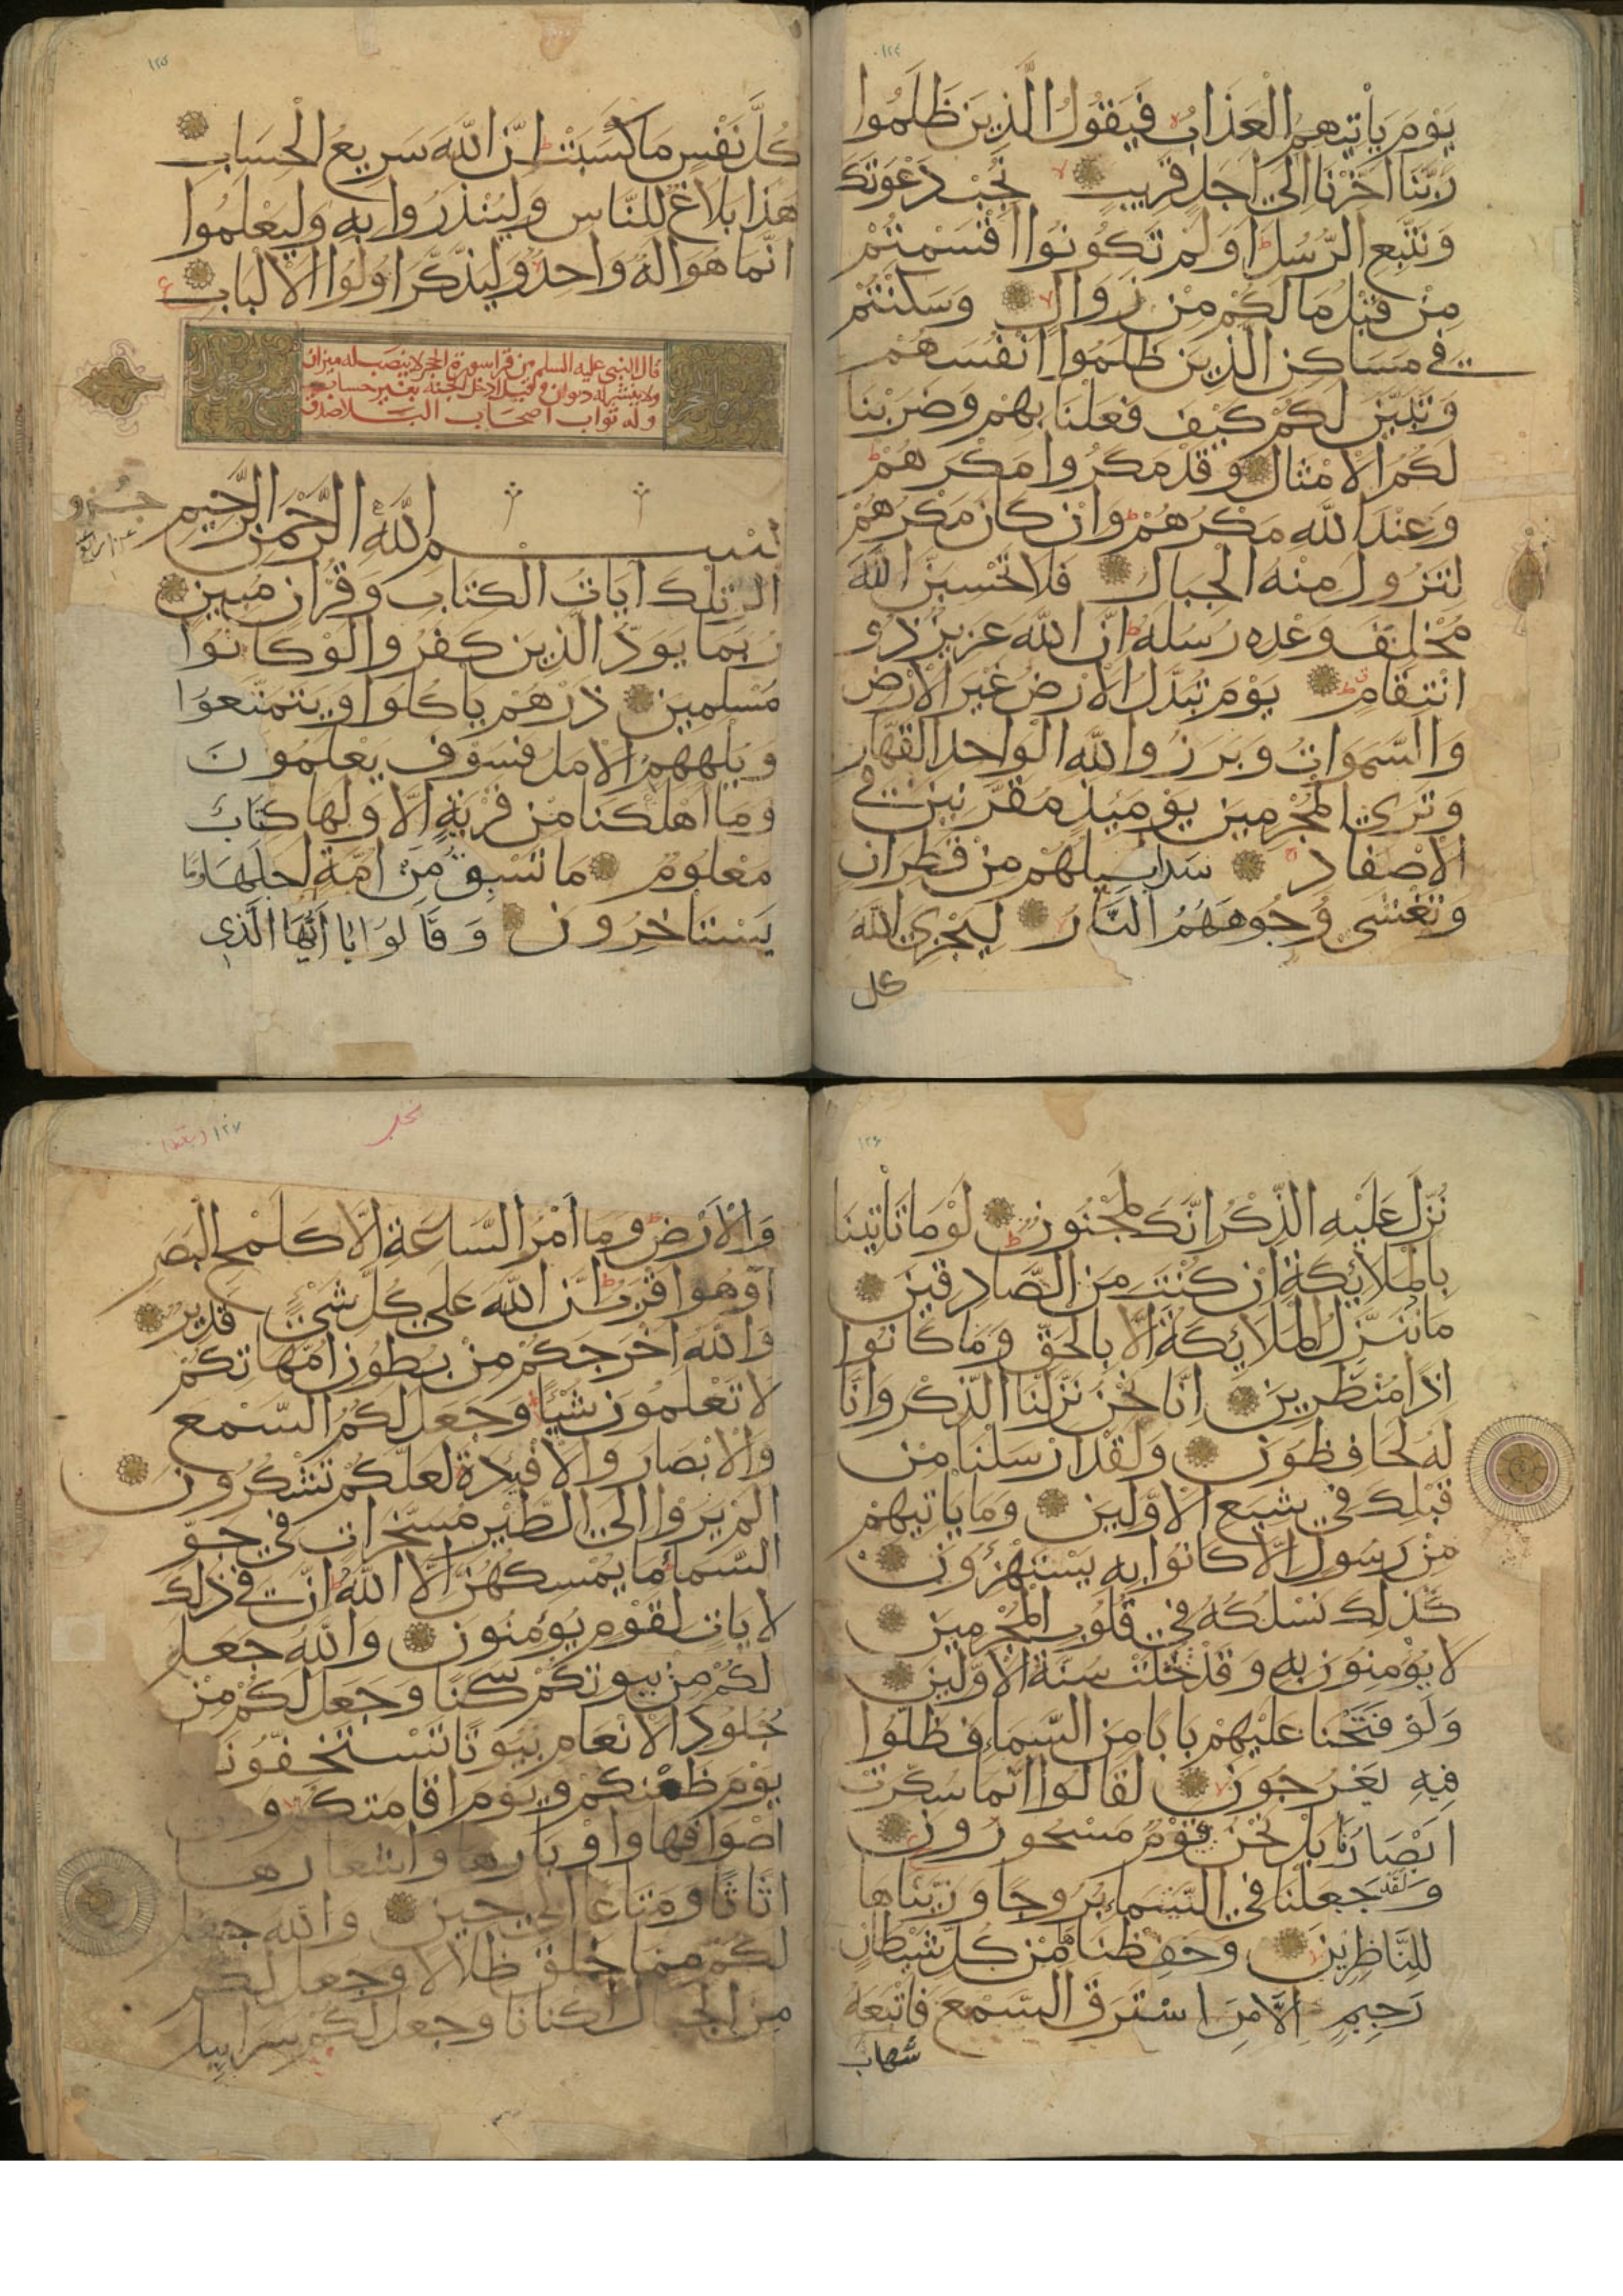 ١٢٤
يَوْمَ يَأْتِيهِمُ الْعَذَابُ فَيَقُولُ الَّذِينَ ظَلَمُوا
رَبَّنَا اَخِّرْنَا اِلَى اَجَلٍ قَرِيبٍ نُجِبْ دَعْوَتَكَ
وَنَتَّبِعِ الرُّسُلَ اَوَلَمْ تَكُونُوا اَقْسَمْتُمْ
مِنْ قَبْلُ مَا لَكُمْ مِنْ زَوَالٍ وَسَكَنْتُمْ
فِي مَسَاكِنِ الَّذِينَ ظَلَمُوا اَنْفُسَهُمْ
وَتَبَيَّنَ لَكُمْ كَيْفَ فَعَلْنَا بِهِمْ وَضَرَبْنَا
لَكُمُ الْاَمْثَالَ وَقَدْ مَكَرُوا مَكْرَهُمْ
وَعِنْدَ اللّٰهِ مَكْرُهُمْ وَاِنْ كَانَ مَكْرُهُمْ
لِتَزُولَ مِنْهُ الْجِبَالُ فَلَا تَحْسَبَنَّ اللّٰهَ
مُخْلِفَ وَعْدِهِ رُسُلَهُ اِنَّ اللّٰهَ عَزِيزٌ ذُو
انْتِقَامٍ يَوْمَ تُبَدَّلُ الْاَرْضُ غَيْرَ الْاَرْضِ
وَالسَّمَوَاتُ وَبَرَزُوا لِلّٰهِ الْوَاحِدِ الْقَهَّارِ
وَتَرَى الْمُجْرِمِينَ يَوْمَئِذٍ مُقَرَّنِينَ فِي
الْاَصْفَادِ سَرَابِيلُهُمْ مِنْ قَطِرَانٍ
وَتَغْشَى وُجُوهَهُمُ النَّارُ لِيَجْزِيَ اللّٰهُ
كل
١٢٥
كُلَّ نَفْسٍ مَا كَسَبَتْ اِنَّ اللّٰهَ سَرِيعُ الْحِسَابِ
هَذَا بَلَاغٌ لِلنَّاسِ وَلِيُنْذَرُوا بِهِ وَلِيَعْلَمُوا
اَنَّمَا هُوَ اِلَهٌ وَاحِدٌ وَلِيَذَّكَّرَ اُولُوا الْاَلْبَابِ
قال النبي عليه السلم من قرا سورة الحجر لا ينصب له ميزان
ولا ينشر له ديوان وقيل له ادخل الجنة بغير حساب
وله ثواب اصحاب البلا
بسم اللّٰه الرحمن الرحيم
الر تِلْكَ اٰيَاتُ الْكِتَابِ وَقُرْاٰنٍ مُبِينٍ
رُبَمَا يَوَدُّ الَّذِينَ كَفَرُوا لَوْ كَانُوا
مُسْلِمِينَ ذَرْهُمْ يَاكُلُوا وَيَتَمَتَّعُوا
وَيُلْهِهِمُ الْاَمَلُ فَسَوْفَ يَعْلَمُونَ
وَمَا اَهْلَكْنَا مِنْ قَرْيَةٍ اِلَّا وَلَهَا كِتَابٌ
مَعْلُومٌ مَا تَسْبِقُ مِنْ اُمَّةٍ اَجَلَهَا وَمَا
يَسْتَاخِرُونَ وَقَالُوا يَا اَيُّهَا الَّذِي
١٢٦
نُزِّلَ عَلَيْهِ الذِّكْرُ اِنَّكَ لَمَجْنُونٌ لَوْ مَا تَاْتِينَا
بِالْمَلَائِكَةِ اِنْ كُنْتَ مِنَ الصَّادِقِينَ
مَا نُنَزِّلُ الْمَلَائِكَةَ اِلَّا بِالْحَقِّ وَمَا كَانُوا
اِذًا مُنْظَرِينَ اِنَّا نَحْنُ نَزَّلْنَا الذِّكْرَ وَاِنَّا
لَهُ لَحَافِظُونَ وَلَقَدْ اَرْسَلْنَا مِنْ
قَبْلِكَ فِي شِيَعِ الْاَوَّلِينَ وَمَا يَاْتِيهِمْ
مِنْ رَسُولٍ اِلَّا كَانُوا بِهِ يَسْتَهْزِؤُنَ
كَذَلِكَ نَسْلُكُهُ فِي قُلُوبِ الْمُجْرِمِينَ
لَا يُؤْمِنُونَ بِهِ وَقَدْ خَلَتْ سُنَّةُ الْاَوَّلِينَ
وَلَوْ فَتَحْنَا عَلَيْهِمْ بَابًا مِنَ السَّمَاءِ فَظَلُّوا
فِيهِ يَعْرُجُونَ لَقَالُوا اِنَّمَا سُكِّرَتْ
اَبْصَارُنَا بَلْ نَحْنُ قَوْمٌ مَسْحُورُونَ
وَلَقَدْ جَعَلْنَا فِي السَّمَاءِ بُرُوجًا وَزَيَّنَّاهَا
لِلنَّاظِرِينَ وَحَفِظْنَاهَا مِنْ كُلِّ شَيْطَانٍ
رَجِيمٍ اِلَّا مَنِ اسْتَرَقَ السَّمْعَ فَاَتْبَعَهُ
شهاب
١٢٧
وَالْاَرْضِ وَمَا اَمْرُ السَّاعَةِ اِلَّا كَلَمْحِ الْبَصَرِ
اَوْ هُوَ اَقْرَبُ اِنَّ اللّٰهَ عَلَى كُلِّ شَيْءٍ قَدِيرٌ
وَاللّٰهُ اَخْرَجَكُمْ مِنْ بُطُونِ اُمَّهَاتِكُمْ
لَا تَعْلَمُونَ شَيْئًا وَجَعَلَ لَكُمُ السَّمْعَ
وَالْاَبْصَارَ وَالْاَفْئِدَةَ لَعَلَّكُمْ تَشْكُرُونَ
اَلَمْ يَرَوْا اِلَى الطَّيْرِ مُسَخَّرَاتٍ فِي جَوِّ
السَّمَاءِ مَا يُمْسِكُهُنَّ اِلَّا اللّٰهُ اِنَّ فِي ذَلِكَ
لَاٰيَاتٍ لِقَوْمٍ يُؤْمِنُونَ وَاللّٰهُ جَعَلَ
لَكُمْ مِنْ بُيُوتِكُمْ سَكَنًا وَجَعَلَ لَكُمْ مِنْ
جُلُودِ الْاَنْعَامِ بُيُوتًا تَسْتَخِفُّونَهَا
يَوْمَ ظَعْنِكُمْ وَيَوْمَ اِقَامَتِكُمْ وَمِنْ
اَصْوَافِهَا وَاَوْبَارِهَا وَاَشْعَارِهَا
اَثَاثًا وَمَتَاعًا اِلَى حِينٍ وَاللّٰهُ جَعَلَ
لَكُمْ مِمَّا خَلَقَ ظِلَالًا وَجَعَلَ لَكُمْ
مِنَ الْجِبَالِ اَكْنَانًا وَجَعَلَ لَكُمْ سَرَابِيلَ